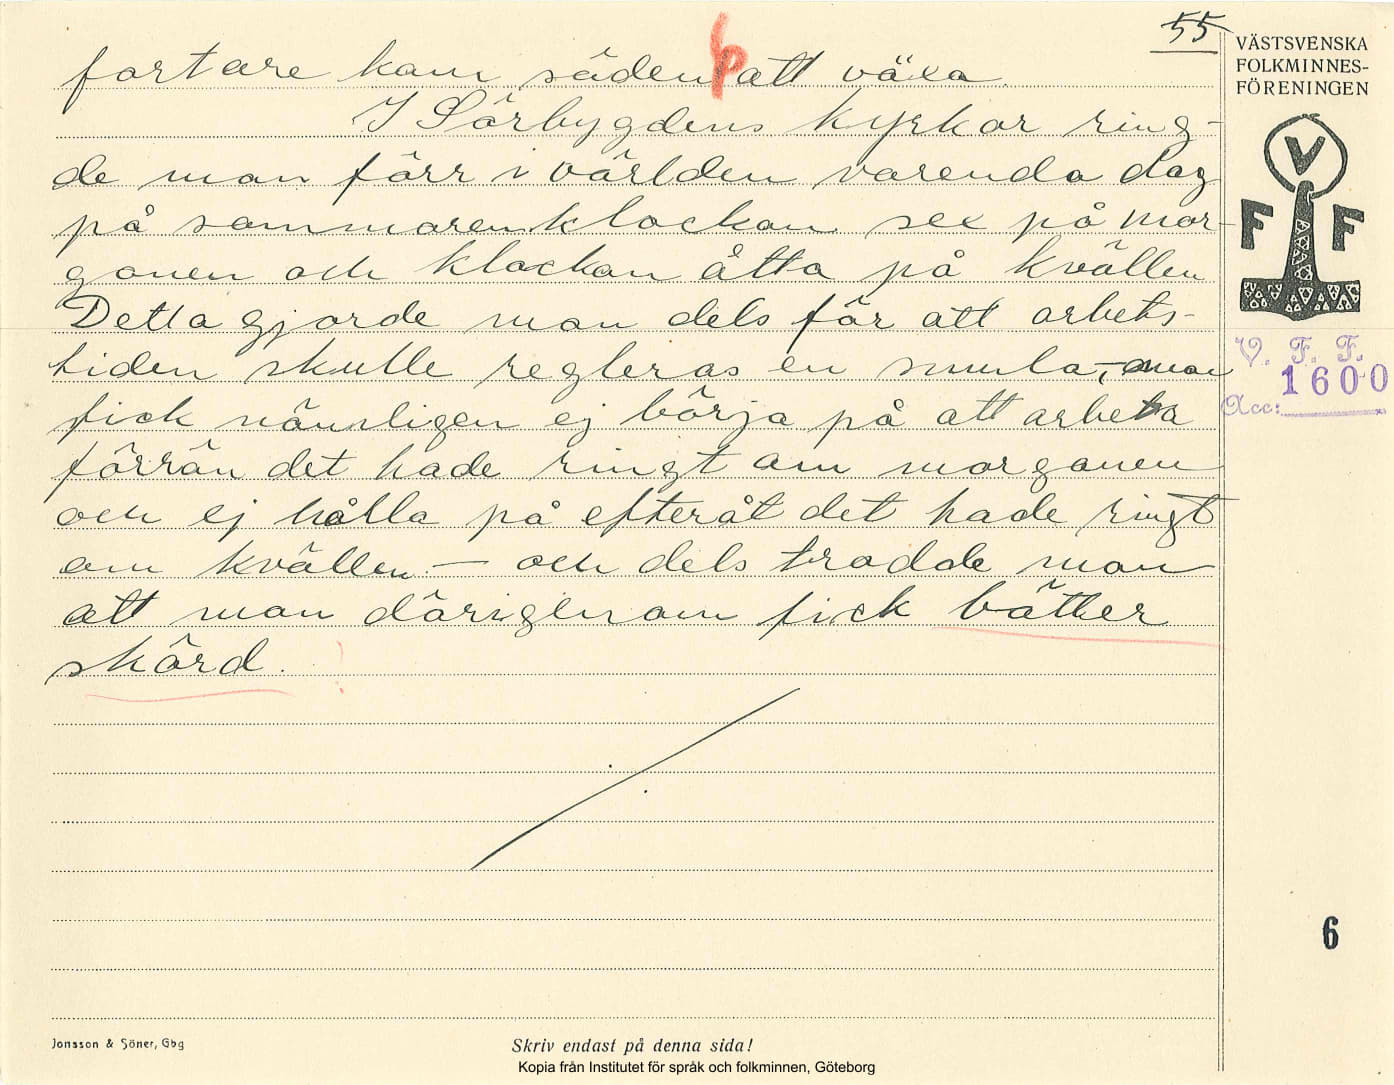 55
fortare kom säden att växa.
I Sörbygdens kyrkor ring-
de man förr i världen varenda dag
på sommaren klockan sex på mor-
gonen och klockan åtta på kvällen
Detta gjorde man dels för att arbets-
tiden skulle regleras en smula, – man
fick nämligen ej börja på att arbeta
förrän det hade ringt om morgonen
och ej hålla på efteråt det hade ringt
om kvällen. – och dels trodde man
att man därigenom fick bätter
skörd.
VÄSTSVENSKA
FOLKMINNES-
FÖRENINGEN
V
F F
V. F. F.
1600
Acc:
6
Jonsson & Söner, Gbg
Skriv endast på denna sida!
Kopia från Institutet för språk och folkminnen, Göteborg